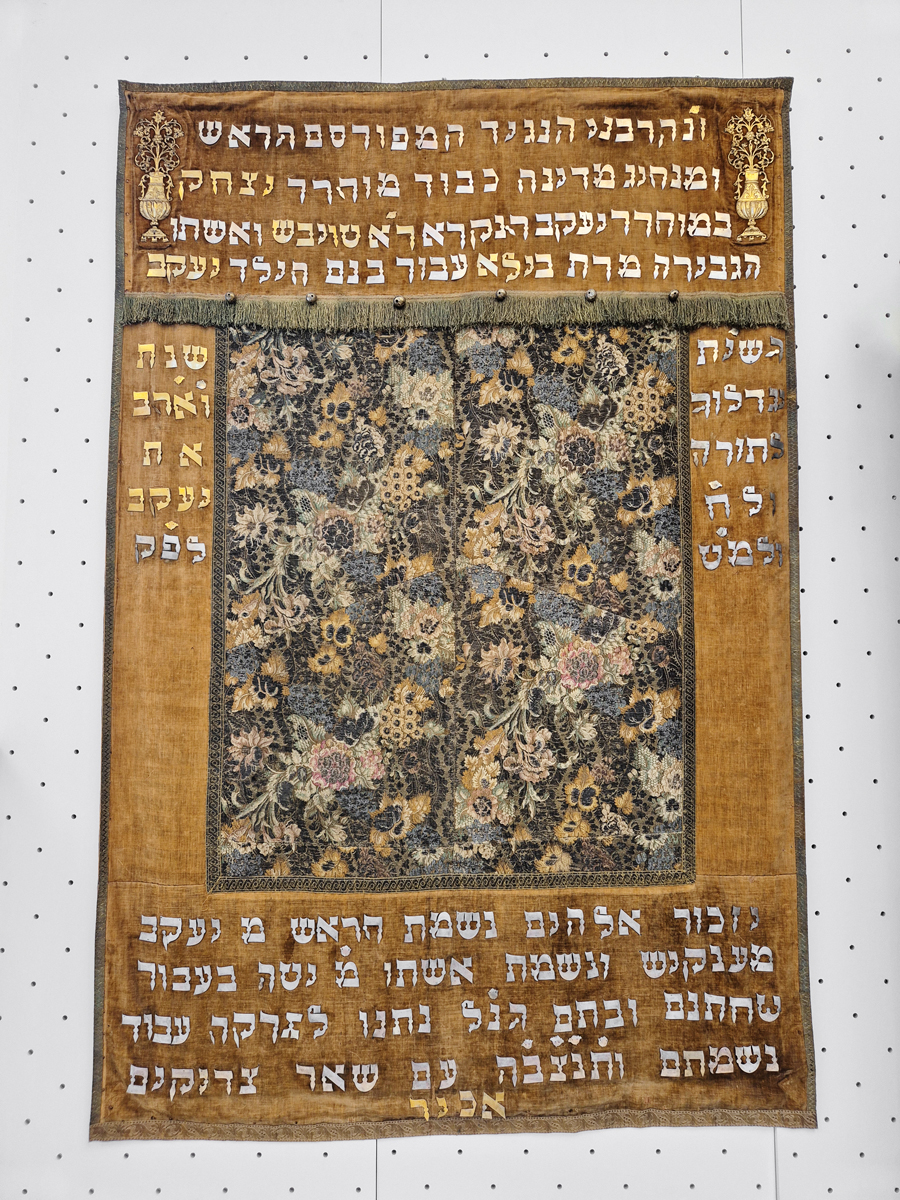 הנגיד המפורסם הראש
ומנהיג מדינה כבוד מוהרר יצחק
במוהרר יעקב הנקרא ר'א טויבש ואשתו
הגבירה מרת בילא עבור בנם הילד יעקב
לתורה
ולח'
שנת
וארב
א ת
יעקב
לפ'ק
יזכור אלהים נשמת הראש מ יעקב
מענקיש ונשמת אשתו מ' יטה בעבור
שחתנם ובתם הנ'ל נתנו לצדקה עבור
נשמתם ות'נ'צ'ב'ה עם שאר צדיקים
אכיר